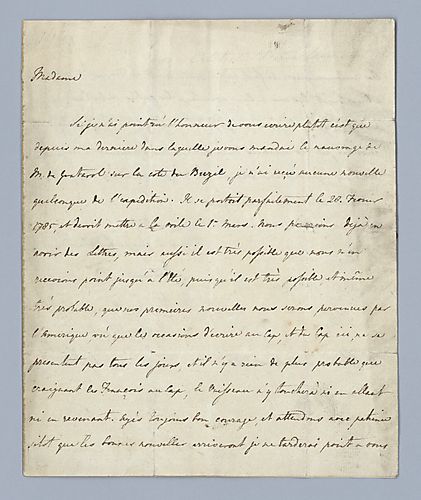 Madame
Si je n'ai point eu l'honneur de vous ecrire plutot c'est que
depuis ma derniere dans laquelle je vous mandai le mensonge de
M. de sur la cote du Brezil, je n'ai reçu aucune nouvelle
quelconque de l'expedition. Il se portoit parfaitement le 28.
1785, et devoit mettre à la voile le 1r. Mars. Nous pourrions deja en
avoir des lettres, mais aussi il est très possible que nous n'en
recevions point jusqu'à l'Eté, puisqu'il est très possible et même
très probable, que nos premieres nouvelles nous seront parvenues par
l'Amerique vû que les occasions d'ecrire au Cap et du Cap ici, ne se
presentent pas tous les jours et il n'y a rien de plus probable que
craignant les François au Cap, le Vaisseau n'y touchera ni en allant
ni en revenant. Ayés toujours bon courage, et attendons avec patience
sitot que les bonnes nouvelles arriveront je ne tarderai point a vous